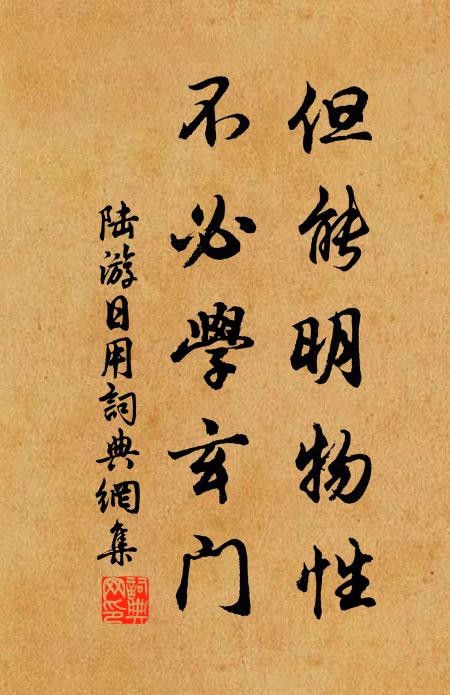 但能明物性
不必學玄门
陆游日用詞典網集
詞典网印